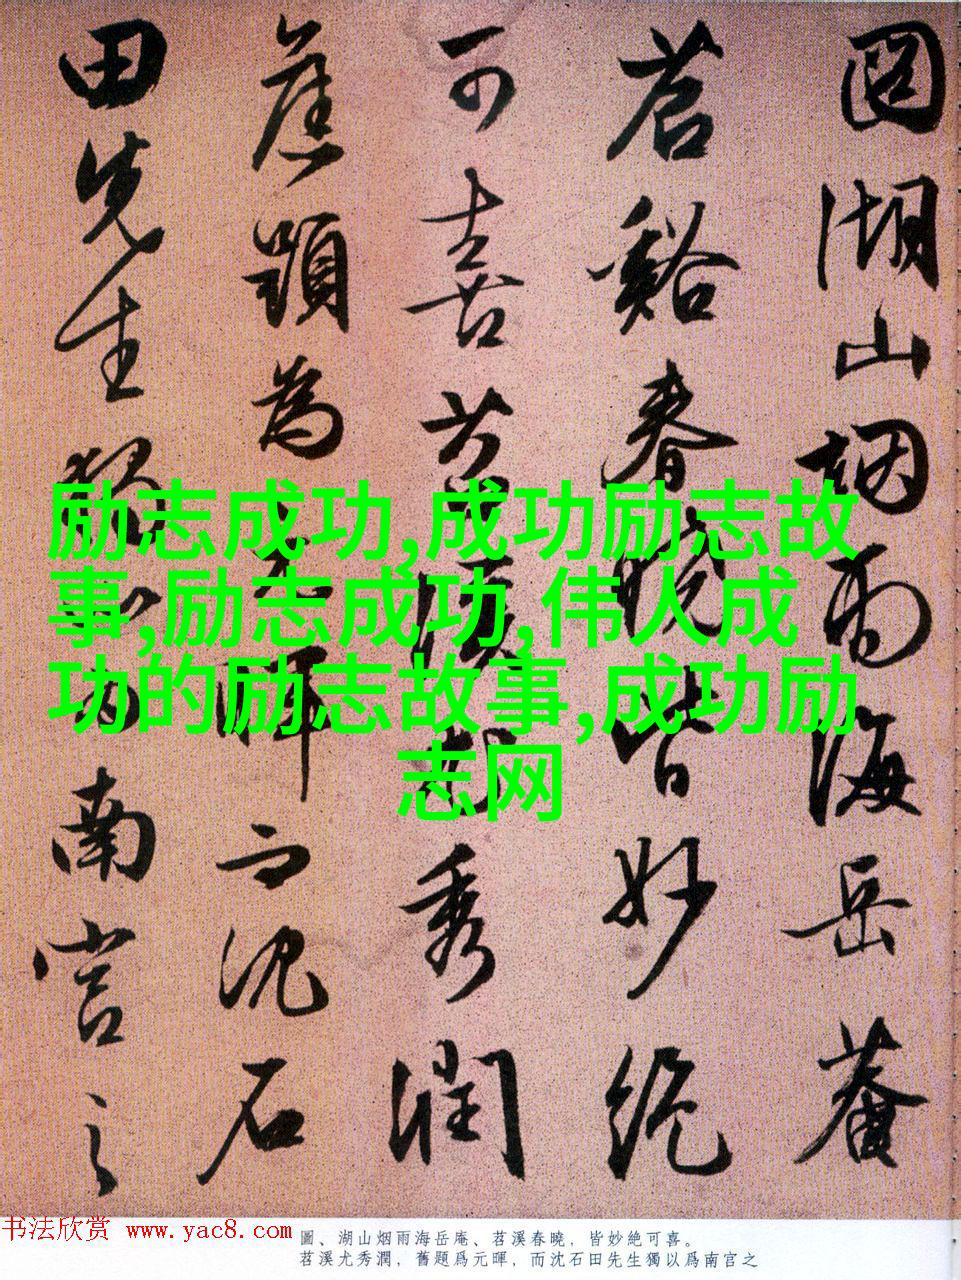 圖湖山烟雨海岳菴
苕谿春曉皆妙絶
可喜苕溪尤秀潤
舊題為元暉而沈石
田先生獨以為南宫之
励志成功,成功励志故
事,励志成功,伟人成
功的励志故事,成功励
志网
书法欣赏 www.yac8.com
圖、湖山烟雨海岳庵、苕溪春曉，皆妙絶可喜。
苕溪尤秀潤，舊題爲元暉，而沈石田先生獨以爲南宫之